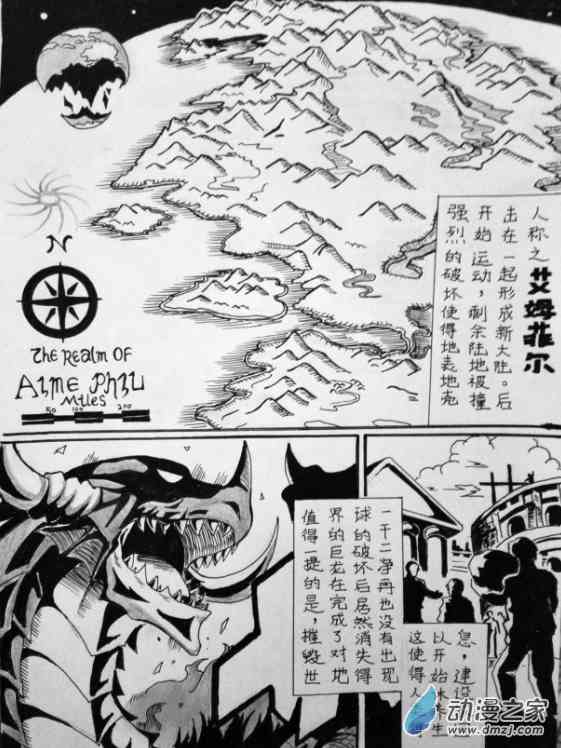 N
The Realm OF
AIME PhIL
Miles
50 100 200
强烈的破坏使得地表地壳
开始运动，剩余陆地被撞
击在一起形成新大陆。后
人称之艾姆菲尔
值得一提的是，摧毁世
界的巨龙在完成了对地
球的破坏后居然消失得
一干二净再也没有出现
这使得人
以开始休养生
息，建设
动漫之家
www.dmzj.com